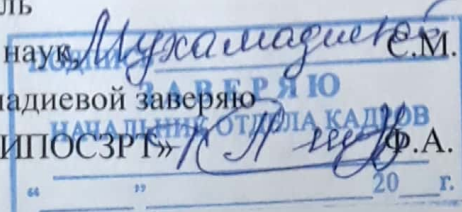 ль
наук, Мухамадиева С.М.
ЗАВЕРЯЮ
мадиевой заверяю
НАЧАЛЬНИК ОТДЕЛА КАДРОВ
ИПОСЗРТ» Ф.А.
“ ” 20 г.